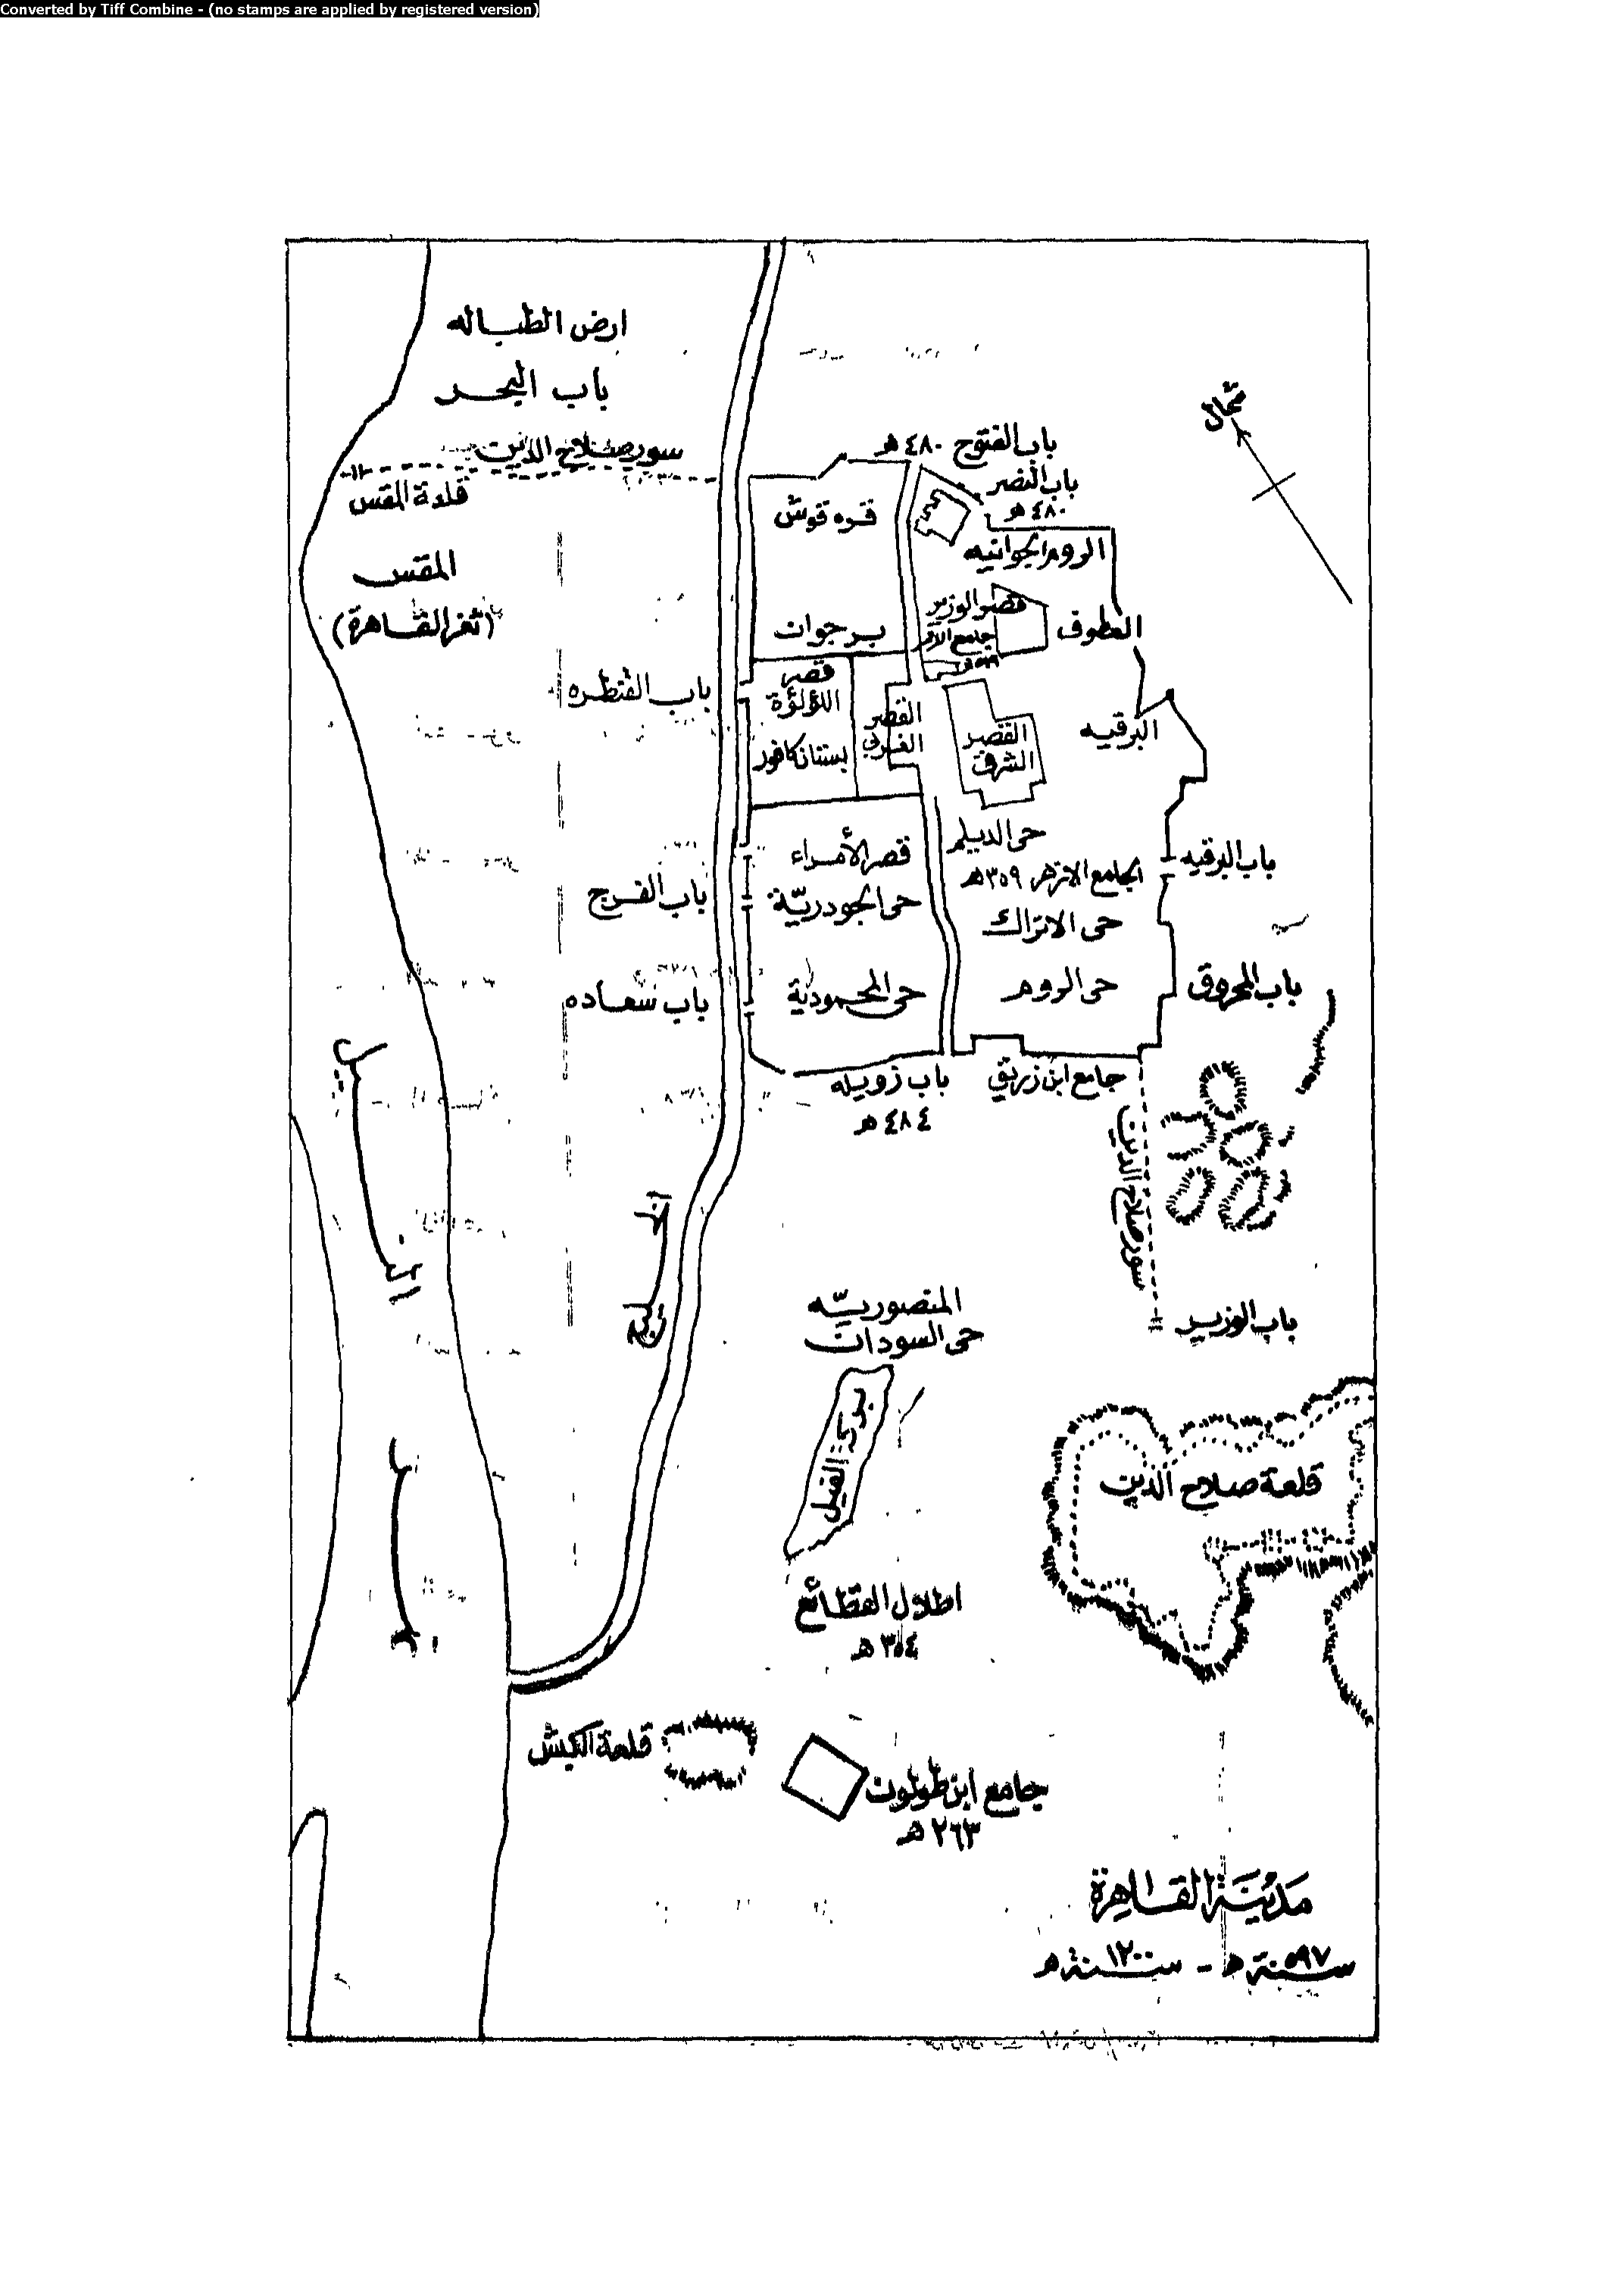 Converted by Tiff Combine - (no stamps are applied by registered version)
ارض الطباله
باب البحر
سور صلاح الدين
قلعة المقس
المقس
(ثغر القاهرة)
شمال
باب الفتوح ٤٨٠ هـ
باب النصر
٤٨٠ هـ
قره قوش
الروم الجوانيه
قصر الوزير
جامع الاقمر
العطوف
برجوان
باب القنطره
قصر
اللؤلؤة
بستان كافور
القصر
الغربي
القصر
الشرقى
البرقيه
حى الديلم
قصر الأمراء
الجامع الازهر ٣٥٩ هـ
باب البرقيه
باب الفرج
حى الجودريّة
حى الاتراك
باب سعاده
حى المحمودية
حى الروم
باب المحروق
باب زويله
٤٨٤ هـ
جامع ابن زريق
سور صلاح الدين
باب الوزير
الخليج
النيل
المنصوريّه
حى السودان
بركة الفيل
قلعة صلاح الدين
اطلال القطائع
٣٥٤ هـ
قلعة الكبش
جامع ابن طولون
٢٦٣ هـ
مَديْنَة القاهِرة
سنة ٥٩٧ هـ - سنة ١٢٠٠ م